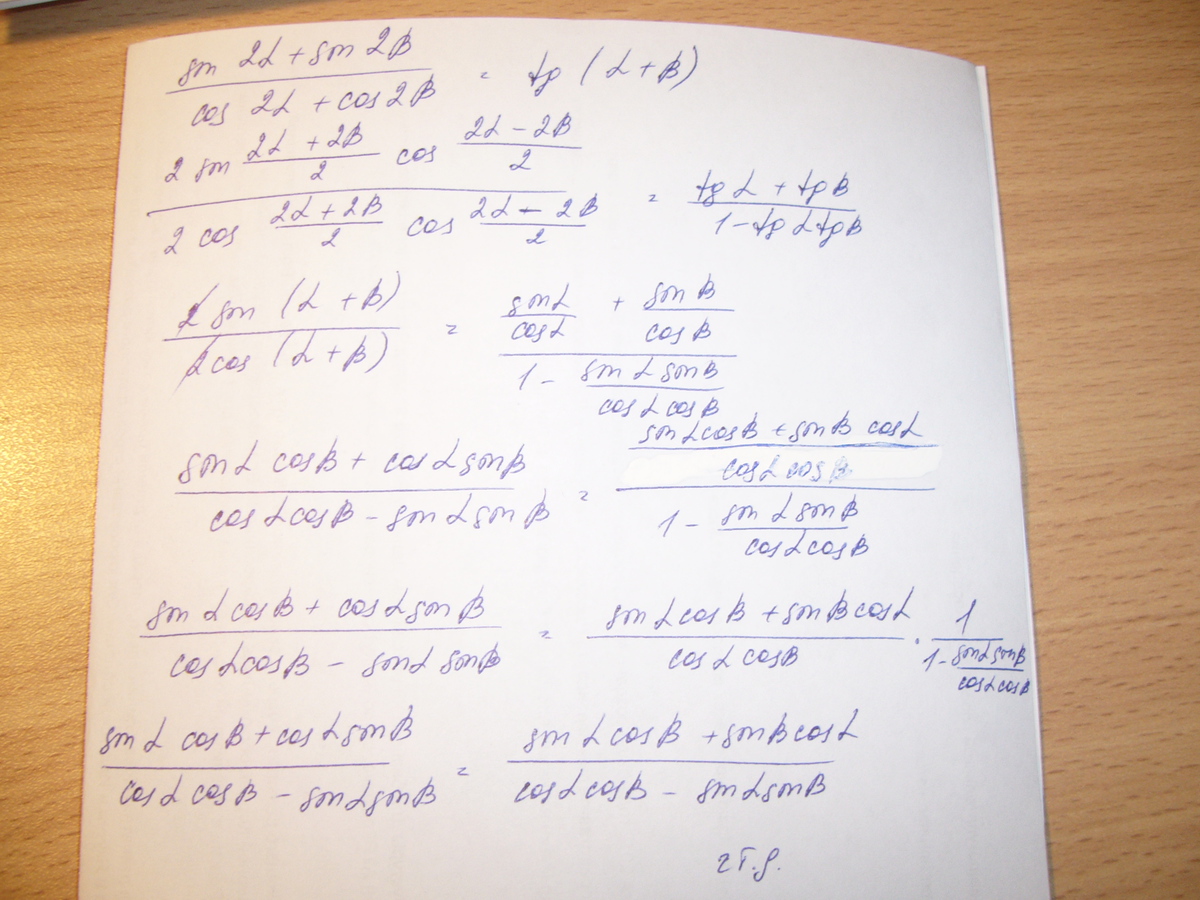 sin 2α + sin 2β / cos 2α + cos 2β = tg (α + β)
2 sin (2α + 2β)/2 cos (2α - 2β)/2 / 2 cos (2α + 2β)/2 cos (2α - 2β)/2 = tg α + tg β / 1 - tg α tg β
2 sin (α + β) / 2 cos (α + β) = sin α / cos α + sin β / cos β / 1 - sin α sin β / cos α cos β
sin α cos β + cos α sin β / cos α cos β - sin α sin β = sin α cos β + sin β cos α / cos α cos β / 1 - sin α sin β / cos α cos β
sin α cos β + cos α sin β / cos α cos β - sin α sin β = sin α cos β + sin β cos α / cos α cos β · 1 / 1 - sin α sin β / cos α cos β
sin α cos β + cos α sin β / cos α cos β - sin α sin β = sin α cos β + sin β cos α / cos α cos β - sin α sin β
ч.т.д.